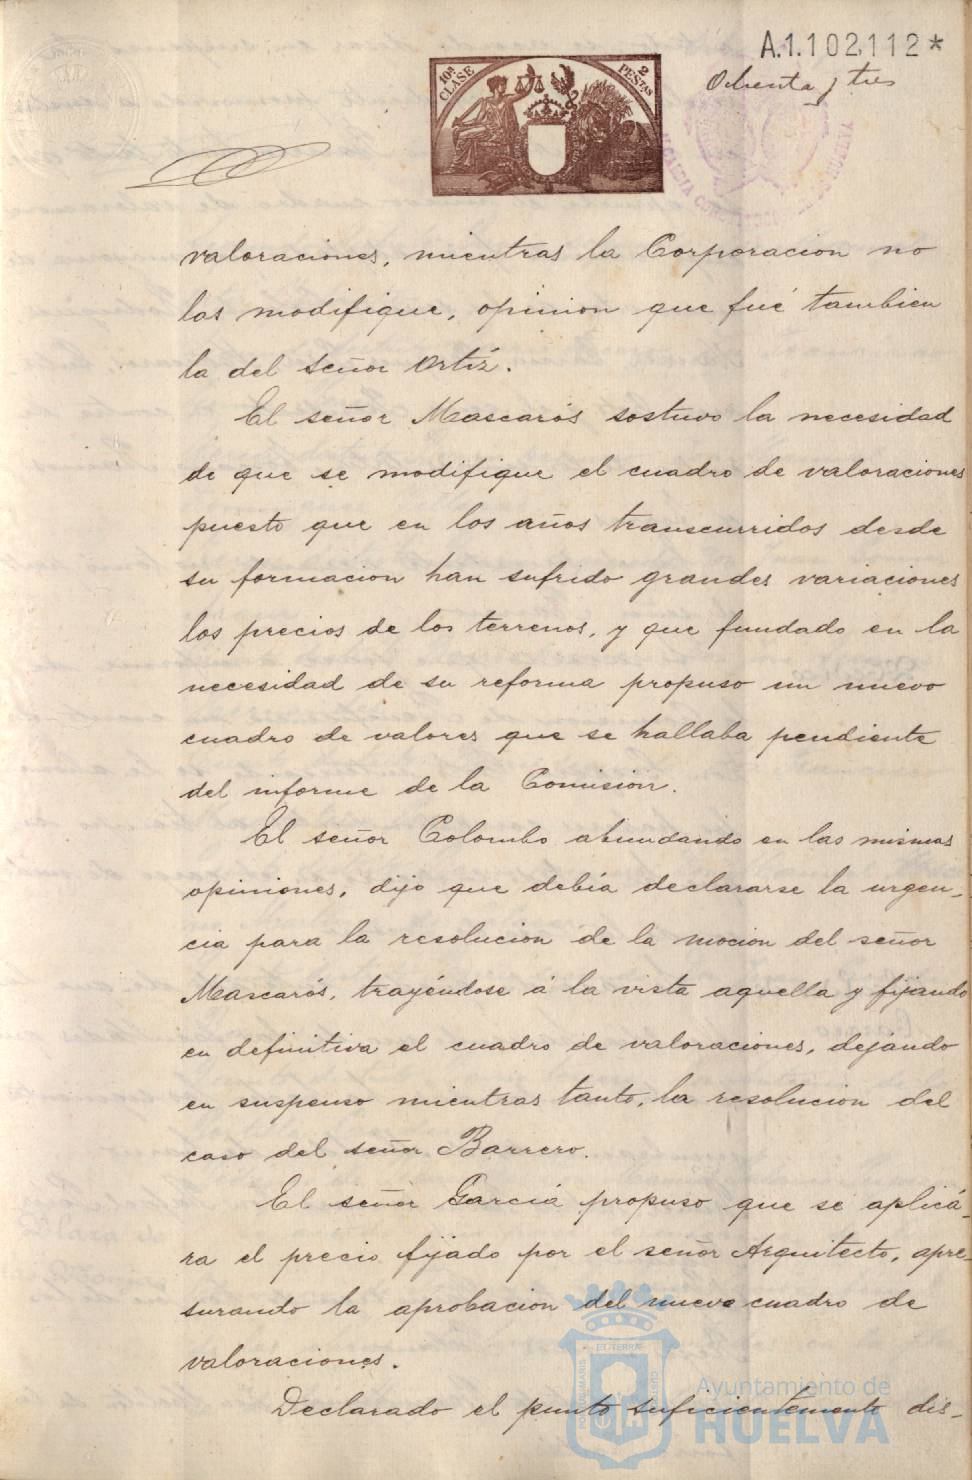 A.1.102,112*
Ochenta y tres
10ª CLASE
2 PESETAS
valoraciones, mientras la Corporacion no
las modifique, opinion que fué tambien
la del señor Ortíz.
El señor Mascarós sostuvo la necesidad
de que se modifique el cuadro de valoraciones
puesto que en los años transcurridos desde
su formacion han sufrido grandes variaciones
los precios de los terrenos, y que fundado en la
necesidad de su reforma propuso un nuevo
cuadro de valores que se hallaba pendiente
del informe de la Comisión.
El señor Colombo abundando en las mismas
opiniones, dijo que debía declararse la urgen-
cia para la resolucion de la mocion del señor
Mascarós, trayéndose á la vista aquella y fijando
en definitiva el cuadro de valoraciones, dejando
en suspenso mientras tanto, la resolucion del
caso del señor Barrero.
El señor García propuso que se aplicá-
ra el precio fijado por el señor Arquitecto, apre-
surando la aprobacion del nuevo cuadro de
valoraciones.
Declarado el punto suficientemente dis-
ET TERRÆ
PORTUS MARIS
CUSTODIA
Ayuntamiento de
HUELVA